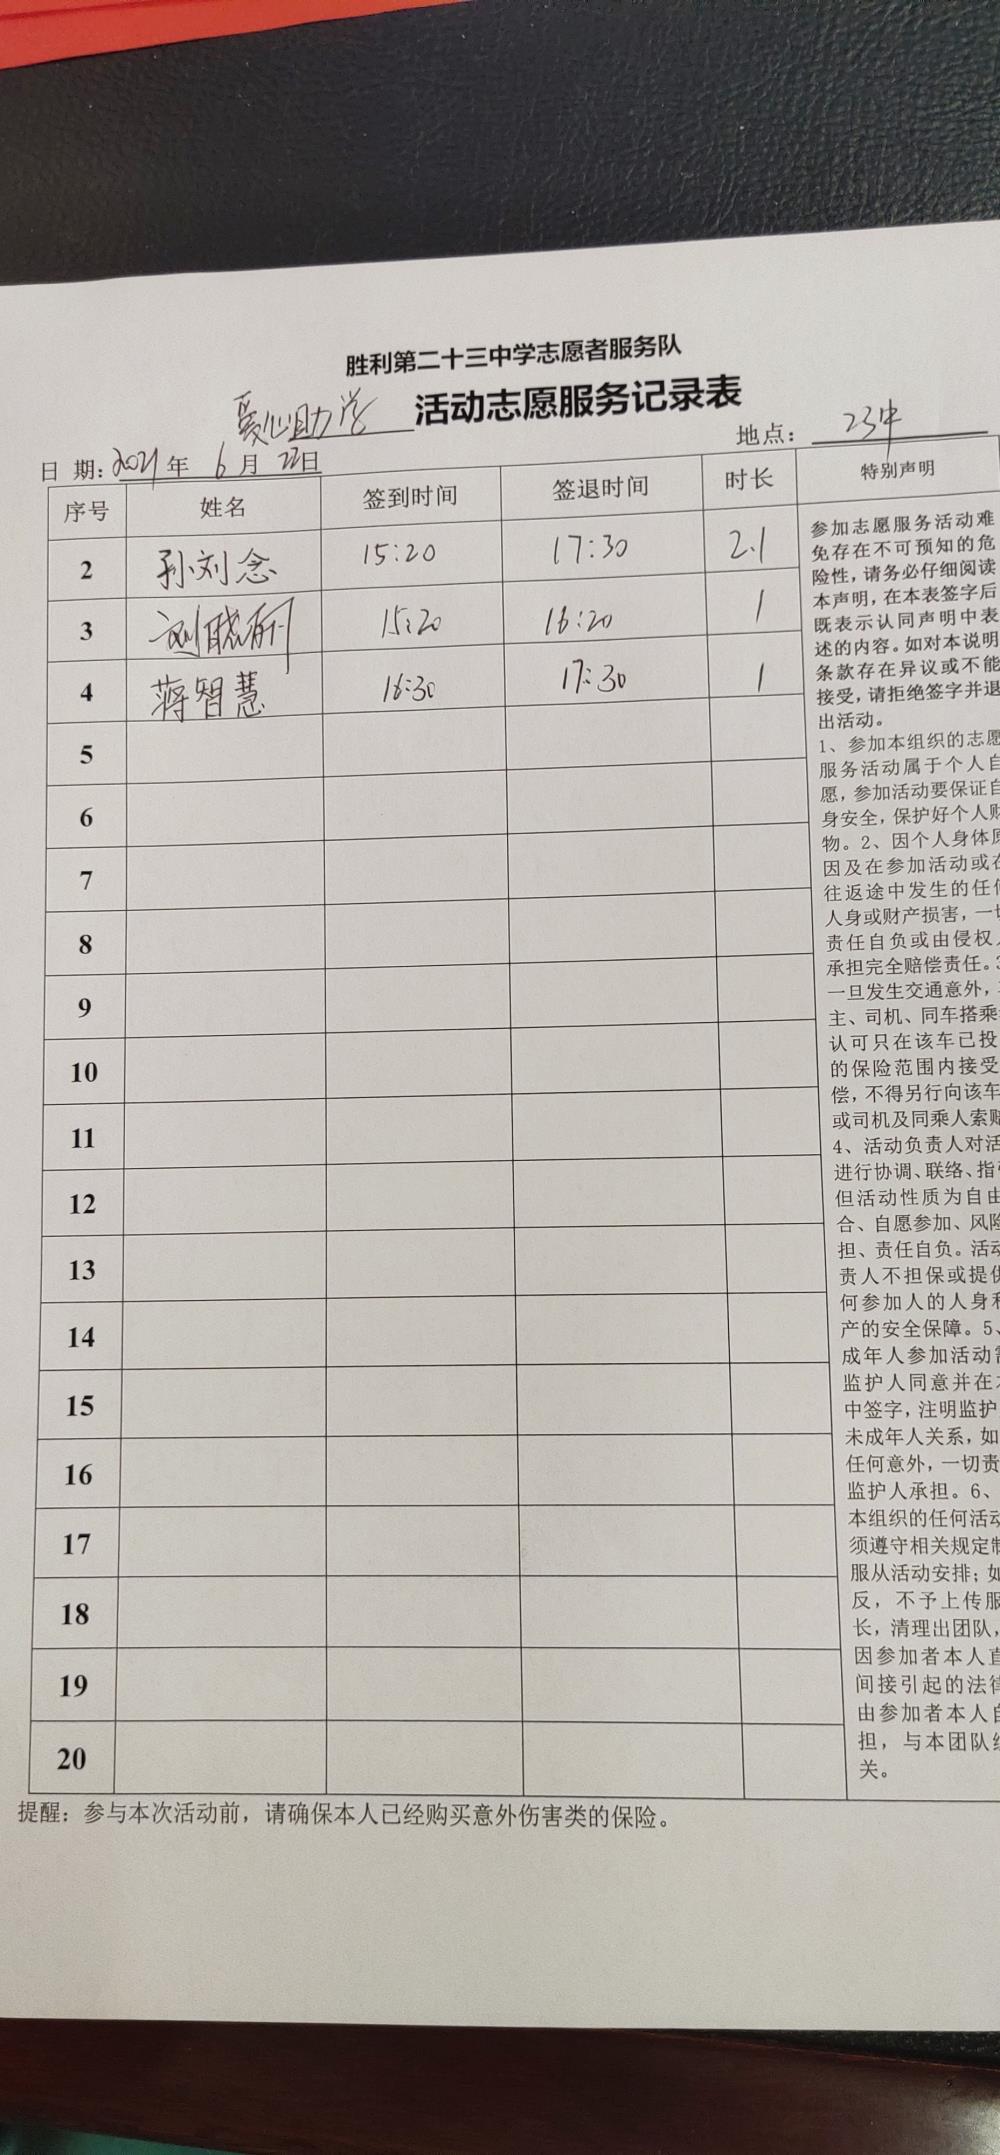 胜利第二十三中学志愿者服务队
爱心助学 活动志愿服务记录表
日 期: 2021 年 6 月 22日 地点: 23中
序号 姓名 签到时间 签退时间 时长 特别声明
2 孙刘念 15:20 17:30 2.1
3 刘 15:20 16:20 1
4 蒋智慧 16:30 17:30 1
5
6
7
8
9
10
11
12
13
14
15
16
17
18
19
20
参加志愿服务活动难
免存在不可预知的危
险性，请务必仔细阅读
本声明，在本表签字后
既表示认同声明中表
述的内容。如对本说明
条款存在异议或不能
接受，请拒绝签字并退
出活动。
1、参加本组织的志愿
服务活动属于个人自
愿，参加活动要保证自
身安全，保护好个人财
物。2、因个人身体原
因及在参加活动或在
往返途中发生的任何
人身或财产损害，一切
责任自负或由侵权人
承担完全赔偿责任。3
一旦发生交通意外，
主、司机、同车搭乘
认可只在该车已投
的保险范围内接受
偿，不得另行向该车
或司机及同乘人索赔
4、活动负责人对活
进行协调、联络、指
但活动性质为自由
合、自愿参加、风险
担、责任自负。活动
责人不担保或提供
何参加人的人身和
产的安全保障。5、
成年人参加活动需
监护人同意并在本
中签字，注明监护
未成年人关系，如
任何意外，一切责
监护人承担。6、
本组织的任何活动
须遵守相关规定制
服从活动安排；如
反，不予上传服
长，清理出团队，
因参加者本人直
间接引起的法律
由参加者本人自
担，与本团队
关。
提醒：参与本次活动前，请确保本人已经购买意外伤害类的保险。